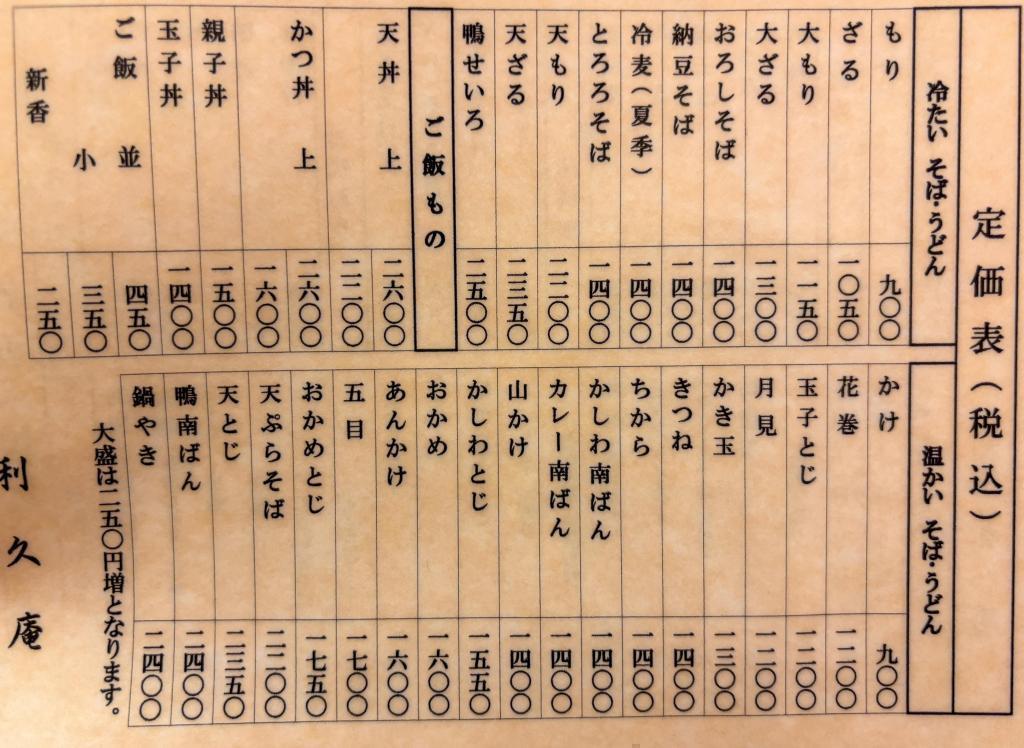 定価表(税込)
冷たい そば・うどん
もり 九〇〇
ざる 一〇五〇
大もり 一一五〇
大ざる 一三〇〇
おろしそば 一四〇〇
納豆そば 一四〇〇
冷麦(夏季) 一四〇〇
とろろそば 一四〇〇
天もり 二二〇〇
天ざる 二三五〇
鴨せいろ 二五〇〇
ご飯もの
天丼 上 二六〇〇
二二〇〇
かつ丼 上 二六〇〇
一六〇〇
親子丼 一五〇〇
玉子丼 一四〇〇
ご飯 並 四五〇
小 三五〇
新香 二五〇
温かい そば・うどん
かけ 九〇〇
花巻 一二〇〇
玉子とじ 一二〇〇
月見 一二〇〇
かき玉 一三〇〇
きつね 一四〇〇
ちから 一四〇〇
かしわ南ばん 一四〇〇
カレー南ばん 一四〇〇
山かけ 一四〇〇
かしわとじ 一五五〇
おかめ 一六〇〇
あんかけ 一六〇〇
五目 一七〇〇
おかめとじ 一七五〇
天ぷらそば 二二〇〇
天とじ 二三五〇
鴨南ばん 二四〇〇
鍋やき 二四〇〇
大盛は二五〇円増となります。
利久庵